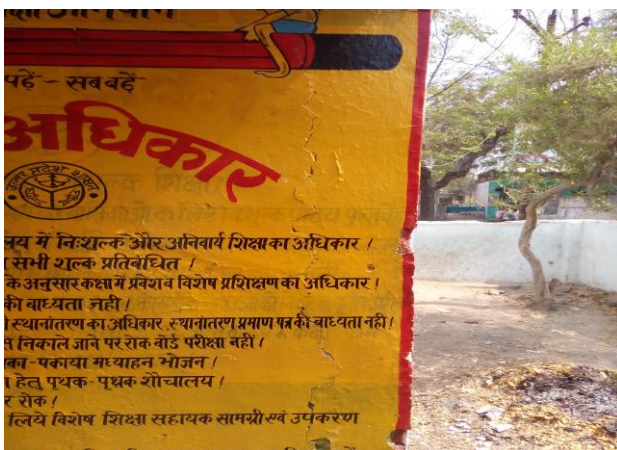 शिक्षा अभियान
पढ़ें - सब बढ़ें
अधिकार
उत्तर प्रदेश
लय में निःशुल्क और अनिवार्य शिक्षा का अधिकार ।
सभी शुल्क प्रतिबंधित ।
के अनुसार कक्षा में प्रवेश व विशेष प्रशिक्षण का अधिकार ।
की बाध्यता नही ।
स्थानांतरण का अधिकार ,स्थानांतरण प्रमाण पत्र की बाध्यता नही ।
निकाले जाने पर रोक बोर्ड परीक्षा नहीं ।
का - पकाया मध्याहन भोजन ।
हेतु पृथक - पृथक शौचालय ।
र रोक ।
लिये विशेष शिक्षा सहायक सामग्री एवं उपकरण